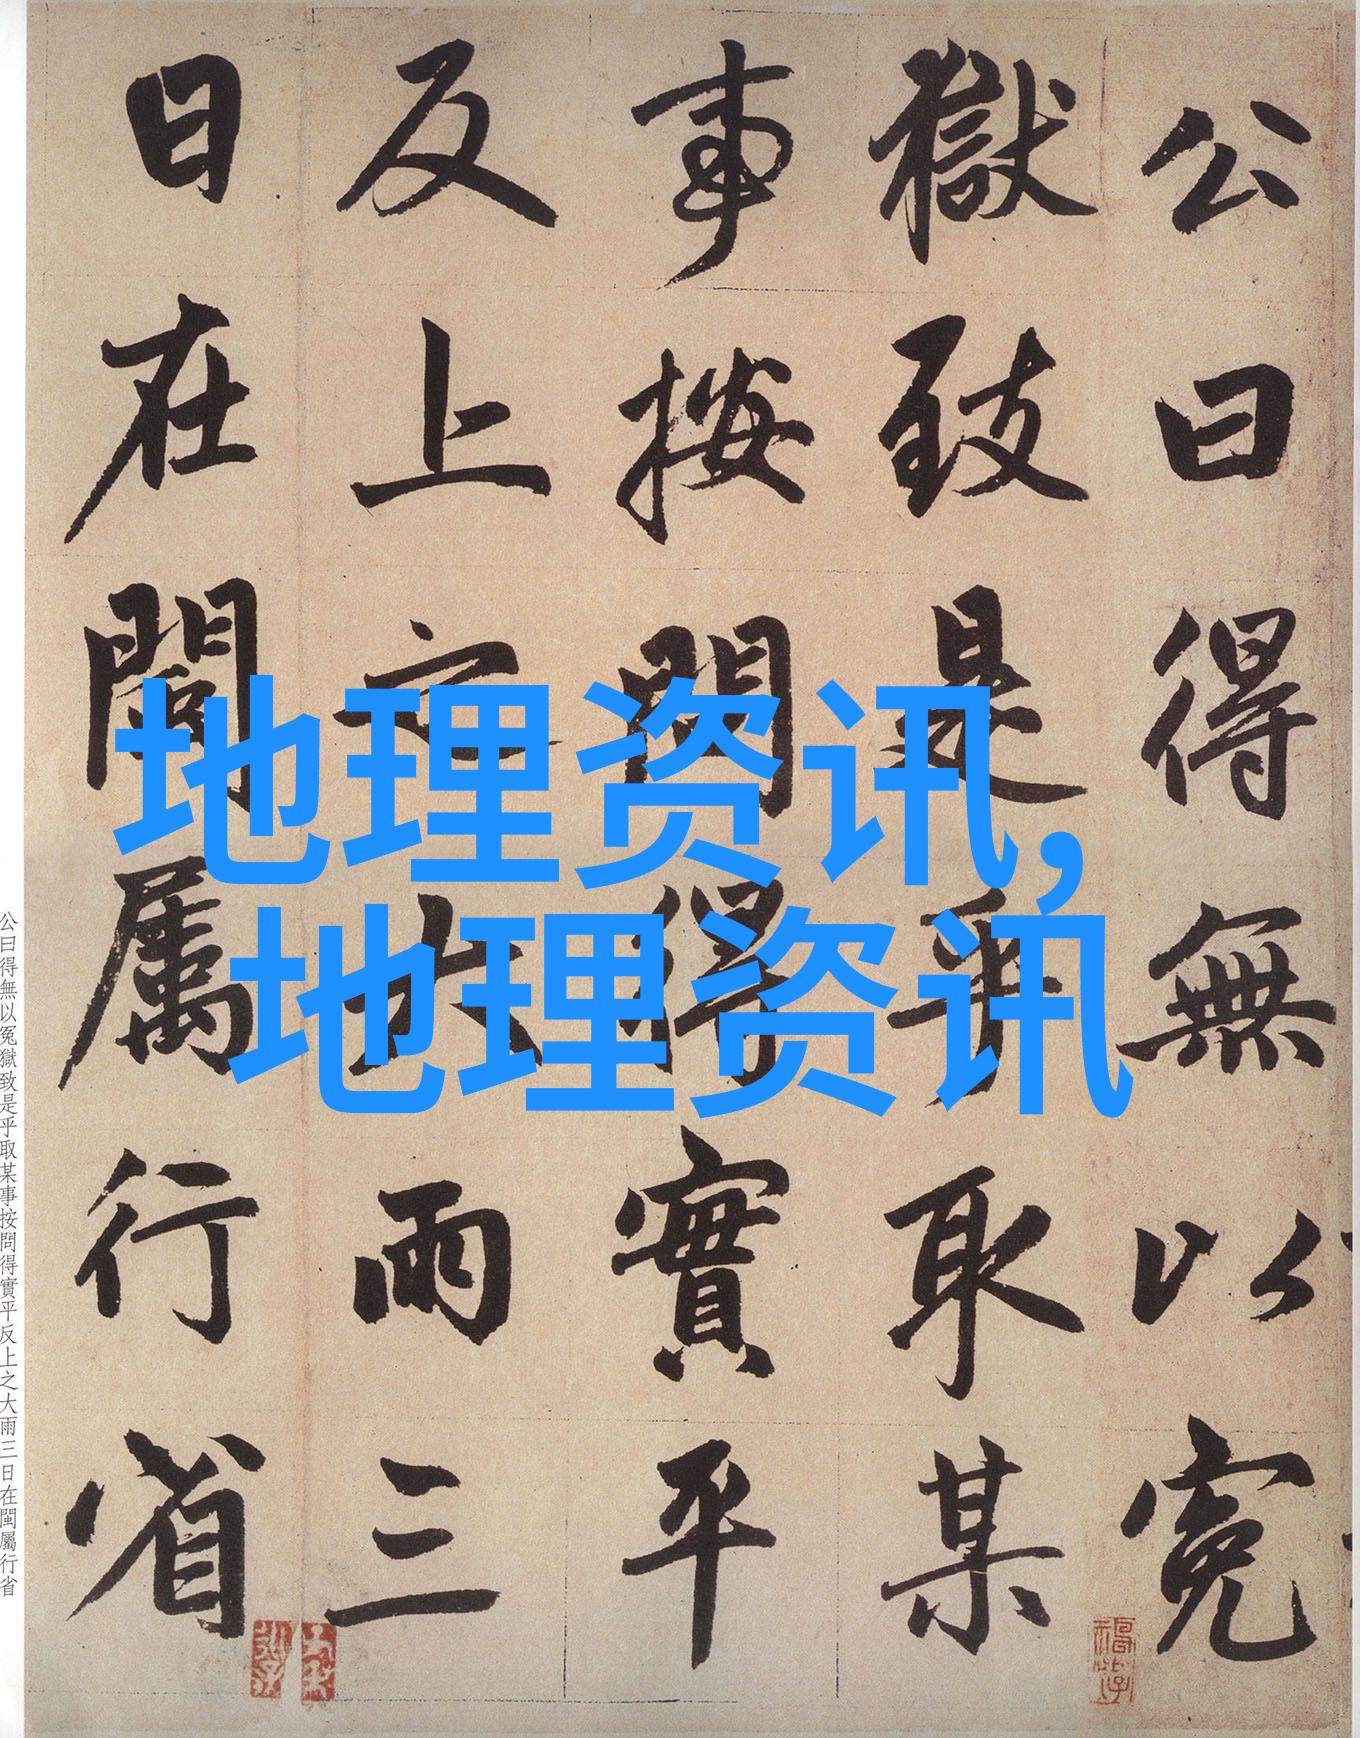 公曰得無以冤
獄致是乎取某
事按問得實平
反上之大雨三
日在閩屬行省
地理资讯,
地理资讯
公曰得無以冤獄致是乎取某事按問得實平反上之大雨三日在閩屬行省